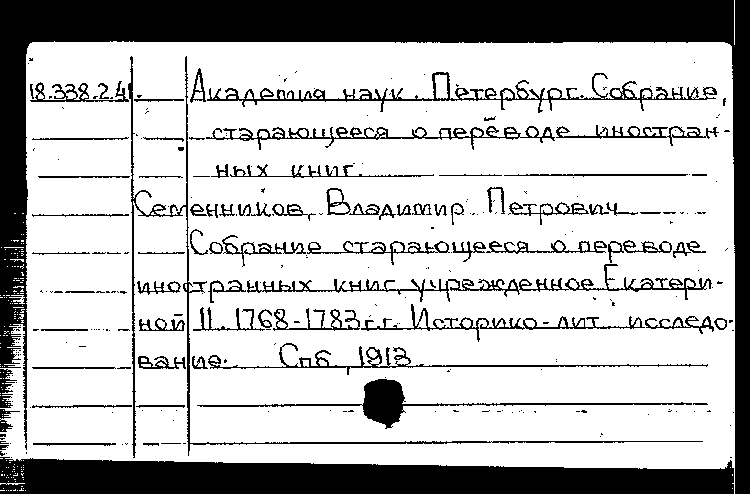 18.338.2.41. Академия наук. Петербург. Собрание,
старающееся о переводе иностран-
ных книг.
Семенников, Владимир Петрович
Собрание старающееся о переводе
иностранных книг, учрежденное Екатери-
ной II. 1768-1783г.г. Историко-лит. исследо-
вание. Спб, 1913